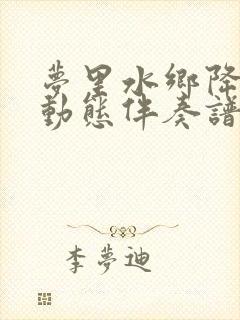 夢里水鄉降
動態伴奏譜
李夢迪